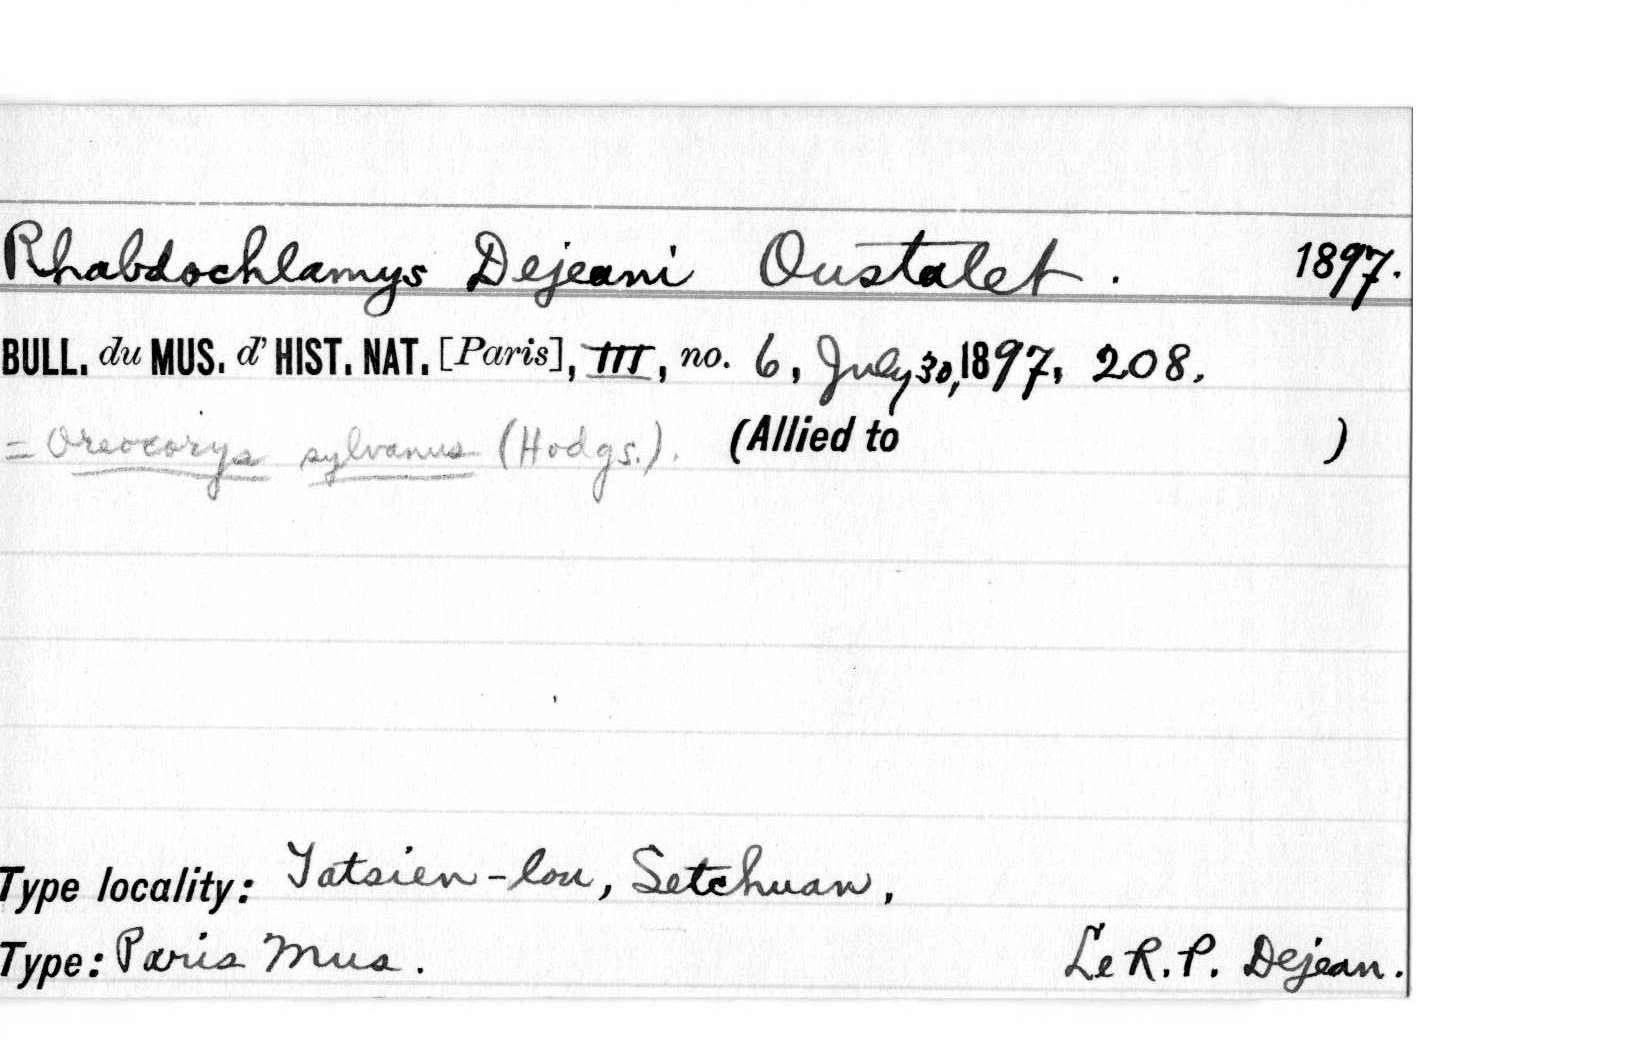 Rhabdochlamys Dejeani Oustalet. 1897.
BULL. du MUS. d' HIST. NAT. [Paris], III, no. 6, July 30, 1897, 208.
= Oreocorys sylvanus (Hodgs.). (Allied to )
Type locality: Tatsien-lou, Setchuan,
Type: Paris Mus. Le R. P. Dejean.